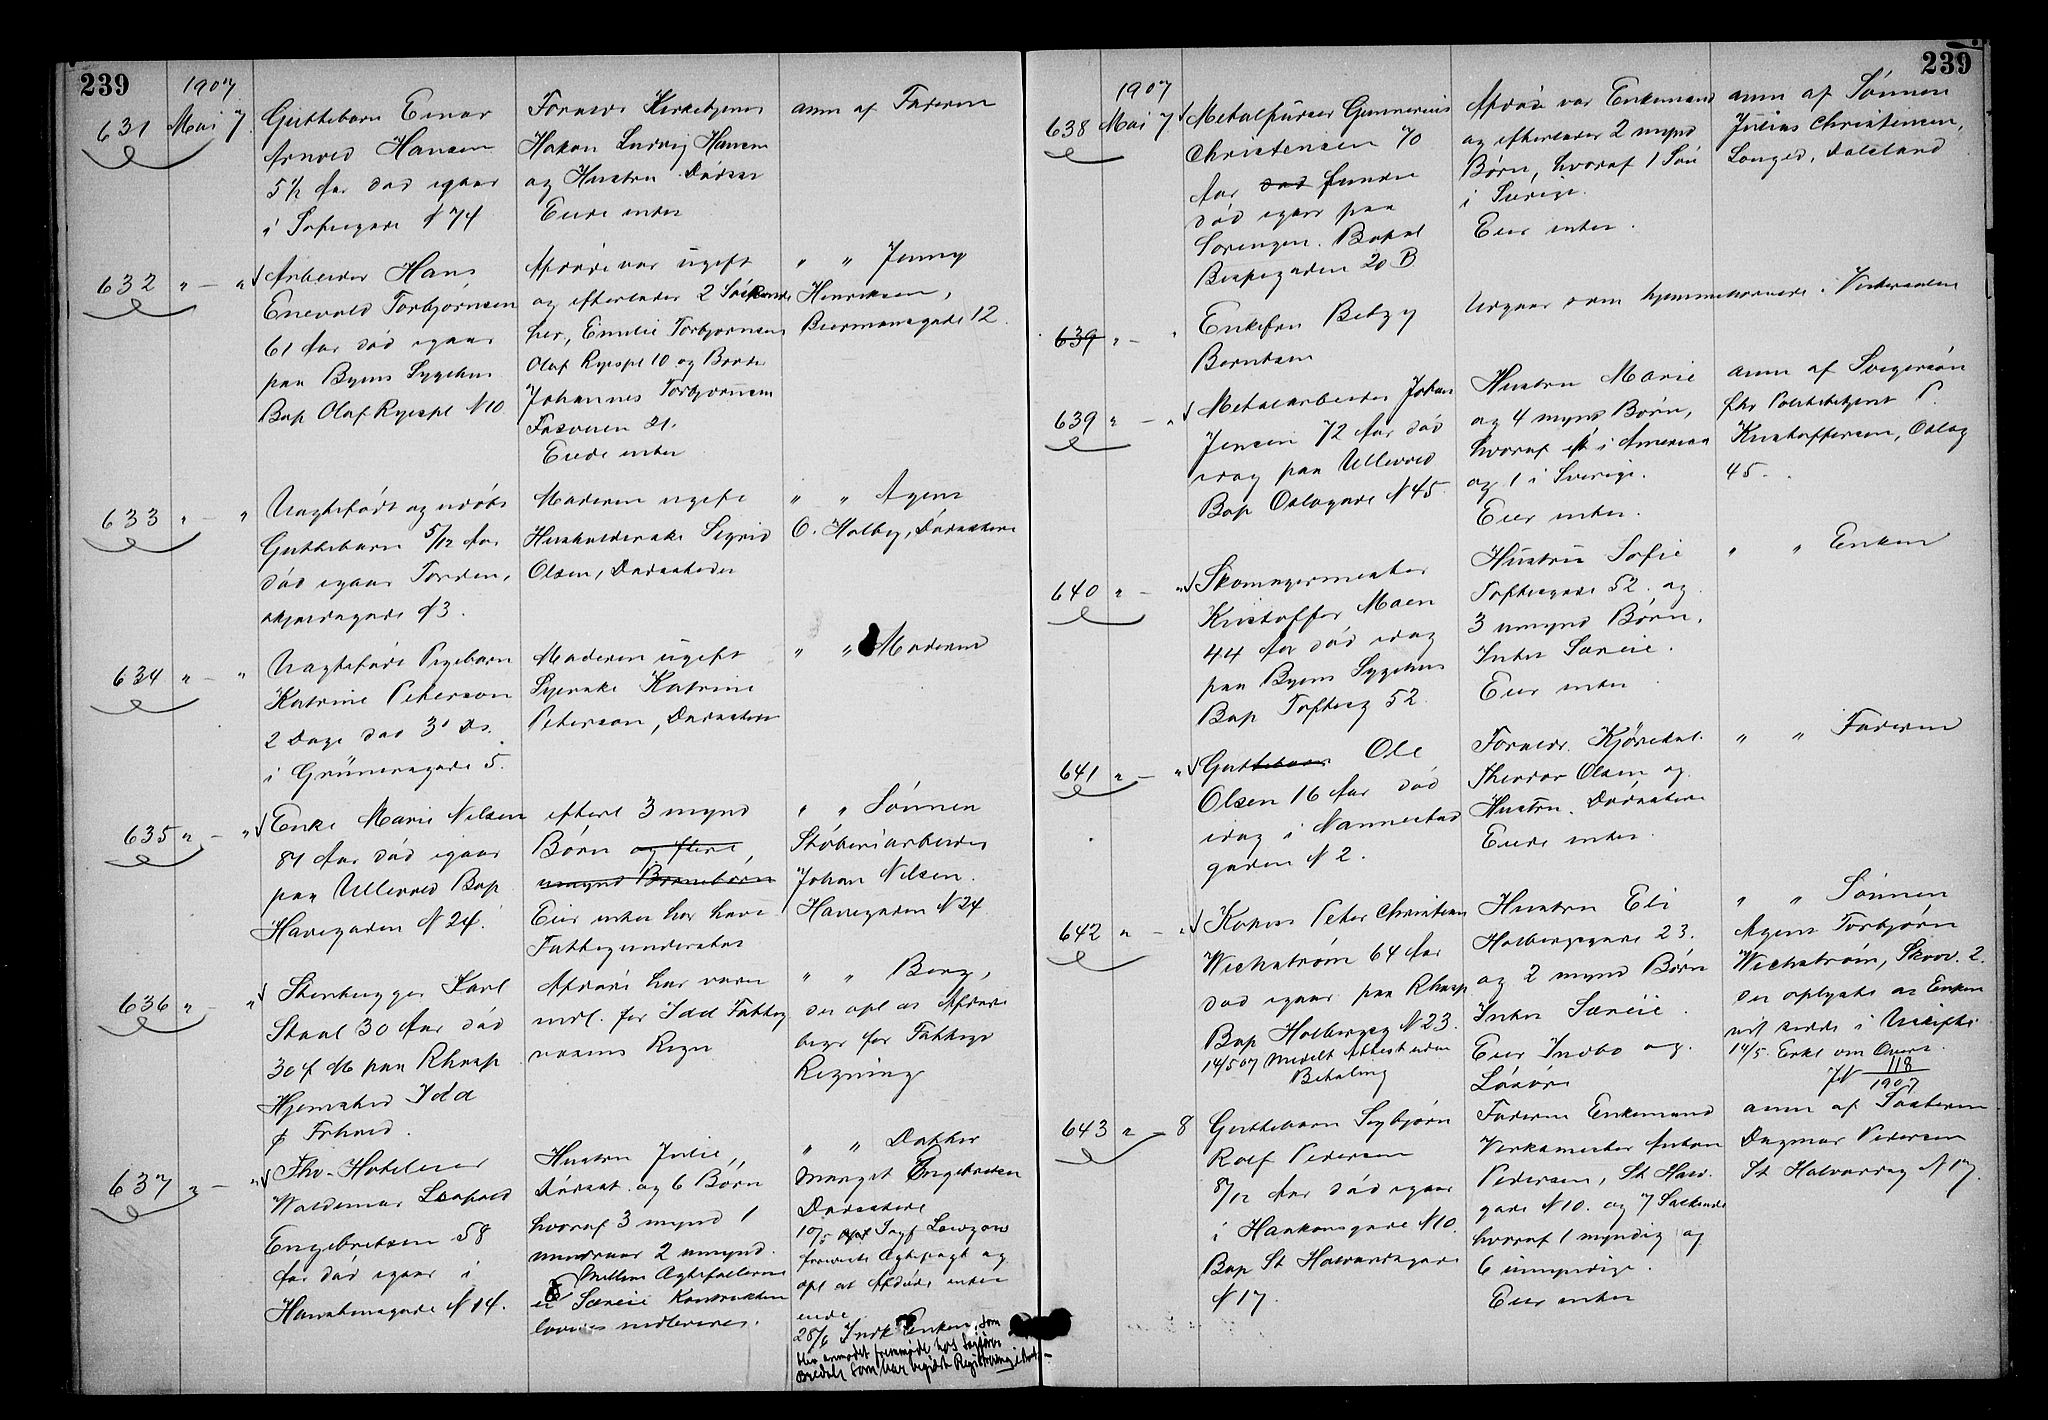 239
1907
631 Mai 7.
Guttebarn Einar
Arnold Hansen
5 1/2 Aar død igaar
i Toftegade N 74
Forældr Kirketjener
Hakon Ludvig Hansen
og Hustru Dødssa
Eiede intet
anm af Faderen
632 " — "
Arbeider Hans
Enevold Torbjørnsen
61 Aar død igaar
paa Byens Sygehus
Bop Olaf Ryespl N 10
Afdøde var ugift
og efterlader 2 Søskende
her, Emilie Torbjørnsen
Olaf Ryespl 10 og Broder
Johannes Torbjørnsen
21.
Eiede intet
" " Jenny
Henriksen,
Biermannsgade 12.
633 " — "
Uægtefødt og udøbt
Guttebarn 5/12 Aar
død igaar Torden-
skjoldsgade N 3.
Moderen ugift
Husholderske Sigrid
Olsen, Dødsstedet
" " Agent
O. Holby, Dødsstedet
634 " — "
Uægtefødt Pigebarn
Katrine Peterson
2 Dage død 3' ds.
i Grünersgade 5.
Moderen ugift
Syerske Katrine
Peterson, Dødsstedet
" " Moderen
635 " — "
Enke Marie Nilsen
81 Aar død igaar
paa Ullevold Bop
Havegaden N 24.
efterl 3 mynd
Børn og flere
umynd Børnebørn
Eier intet har havt
Fattigunderstøt
" " Sønnen
Støberiarbeider
Johan Nilsen.
Havegaden N 24
636 " — "
Stenhugger Karl
Staal 30 Aar død
30 f M paa Rhosp
Hjemsted Idd
p Frhald.
Afdøde har været
indl. for Idd Fattig
væsens Regn
" " Berg,
der opl at Afdøde
begr for Fattigv
Regning
637 " — "
Fhv. Hoteleier
Waldemar Leopold
Engebretsen 58
Aar død igaar i
Hausmannsgade N 14.
Hustru Julie,
Dødsst. og 6 Børn
hvoraf 3 mynd 1
mindreaar 2 umynd.
Mellem Ægtefællerne
er Særeie Kontrakten
loves indleveret.
" " Datter
Margit Engebretsen
Dødsstedet
10/5 Sagf Lowzow
foreviste Ægtepagt og
opl at Afdøde intet
eied
25/6 Indk Enken, som
blev anmodet fremmøde hos Sagfører
Bredal som har begjært Registrering
239
1907
638 Mai 7
Metalpudser Gunnerius
Christensen 70
Aar død funden
død igaar paa
Sørengen. Bopæl
Bispegaden 20 B
Afdøde var Enkemand
og efterlader 2 mynd
Børn, hvoraf 1 Søn
i Sverige.
Eier intet.
anm af Sønnen
Julius Christensen,
Longed, Dalsland
639 " — "
Enkefru Betzy
Berntsen
Udgaar som hjemmehørende i Vesteraalen
639 " — "
Metalarbeider Johan
Jensen 72 Aar død
idag paa Ullevold
Bop Oslogade N 45.
Hustru Marie
og 4 mynd Børn,
hvoraf et i Amerika
og 1 i Sverige.
Eier intet.
anm af Svigersøn
fhv Politibetjent P.
Kristoffersen, Oslog
45.
640 " — "
Skomagermester
Kristoffer Moen
44 Aar død idag
paa Byens Sygehus
Bop Tofteg 52.
Hustru Sofie
Toftesgade 52. og
3 umynd Børn.
Intet Særeie.
Eier intet
" " Enken
641 " — "
Guttebarn Ole
Olsen 16 Aar død
idag i Nannestad
gaden N 2.
Forældr. Kjøredal.
Theodor Olsen og
Hustru. Dødsstedet
Eiede intet.
" " Faderen
642 " — "
Peter Christian
Wickstrøm 64 Aar
død igaar paa Rhosp
Bop Holbergsg N 23.
14/5 07 Meddelt Attest uden
Betaling
Hustru Eli
Holbergsgade 23.
og 2 mynd Børn
Intet Særeie.
Eier Indbo og
Løsøre
" " Sønnen
Agent Torbjørn
Wickstrøm, Skovv. 2.
der oplyste at Enken
vil sidde i Uskifte
14/5. Erkl om Overt.
JN 118
1907
643 " — 8
Guttebarn Sigbjørn
Rolf Pedersen
8/12 Aar død igaar
i Haakonsgade N 10.
Bop St Halvardsgade
N 17.
Faderen Enkemand
Verksmester Anton
Pedersen, St Halv.
gade N 10. og 7 Søskende
hvoraf 1 myndig og
6 umyndige.
Eier intet
anm af Søsteren
Dagmar Pedersen
St Halvardsg N 17.